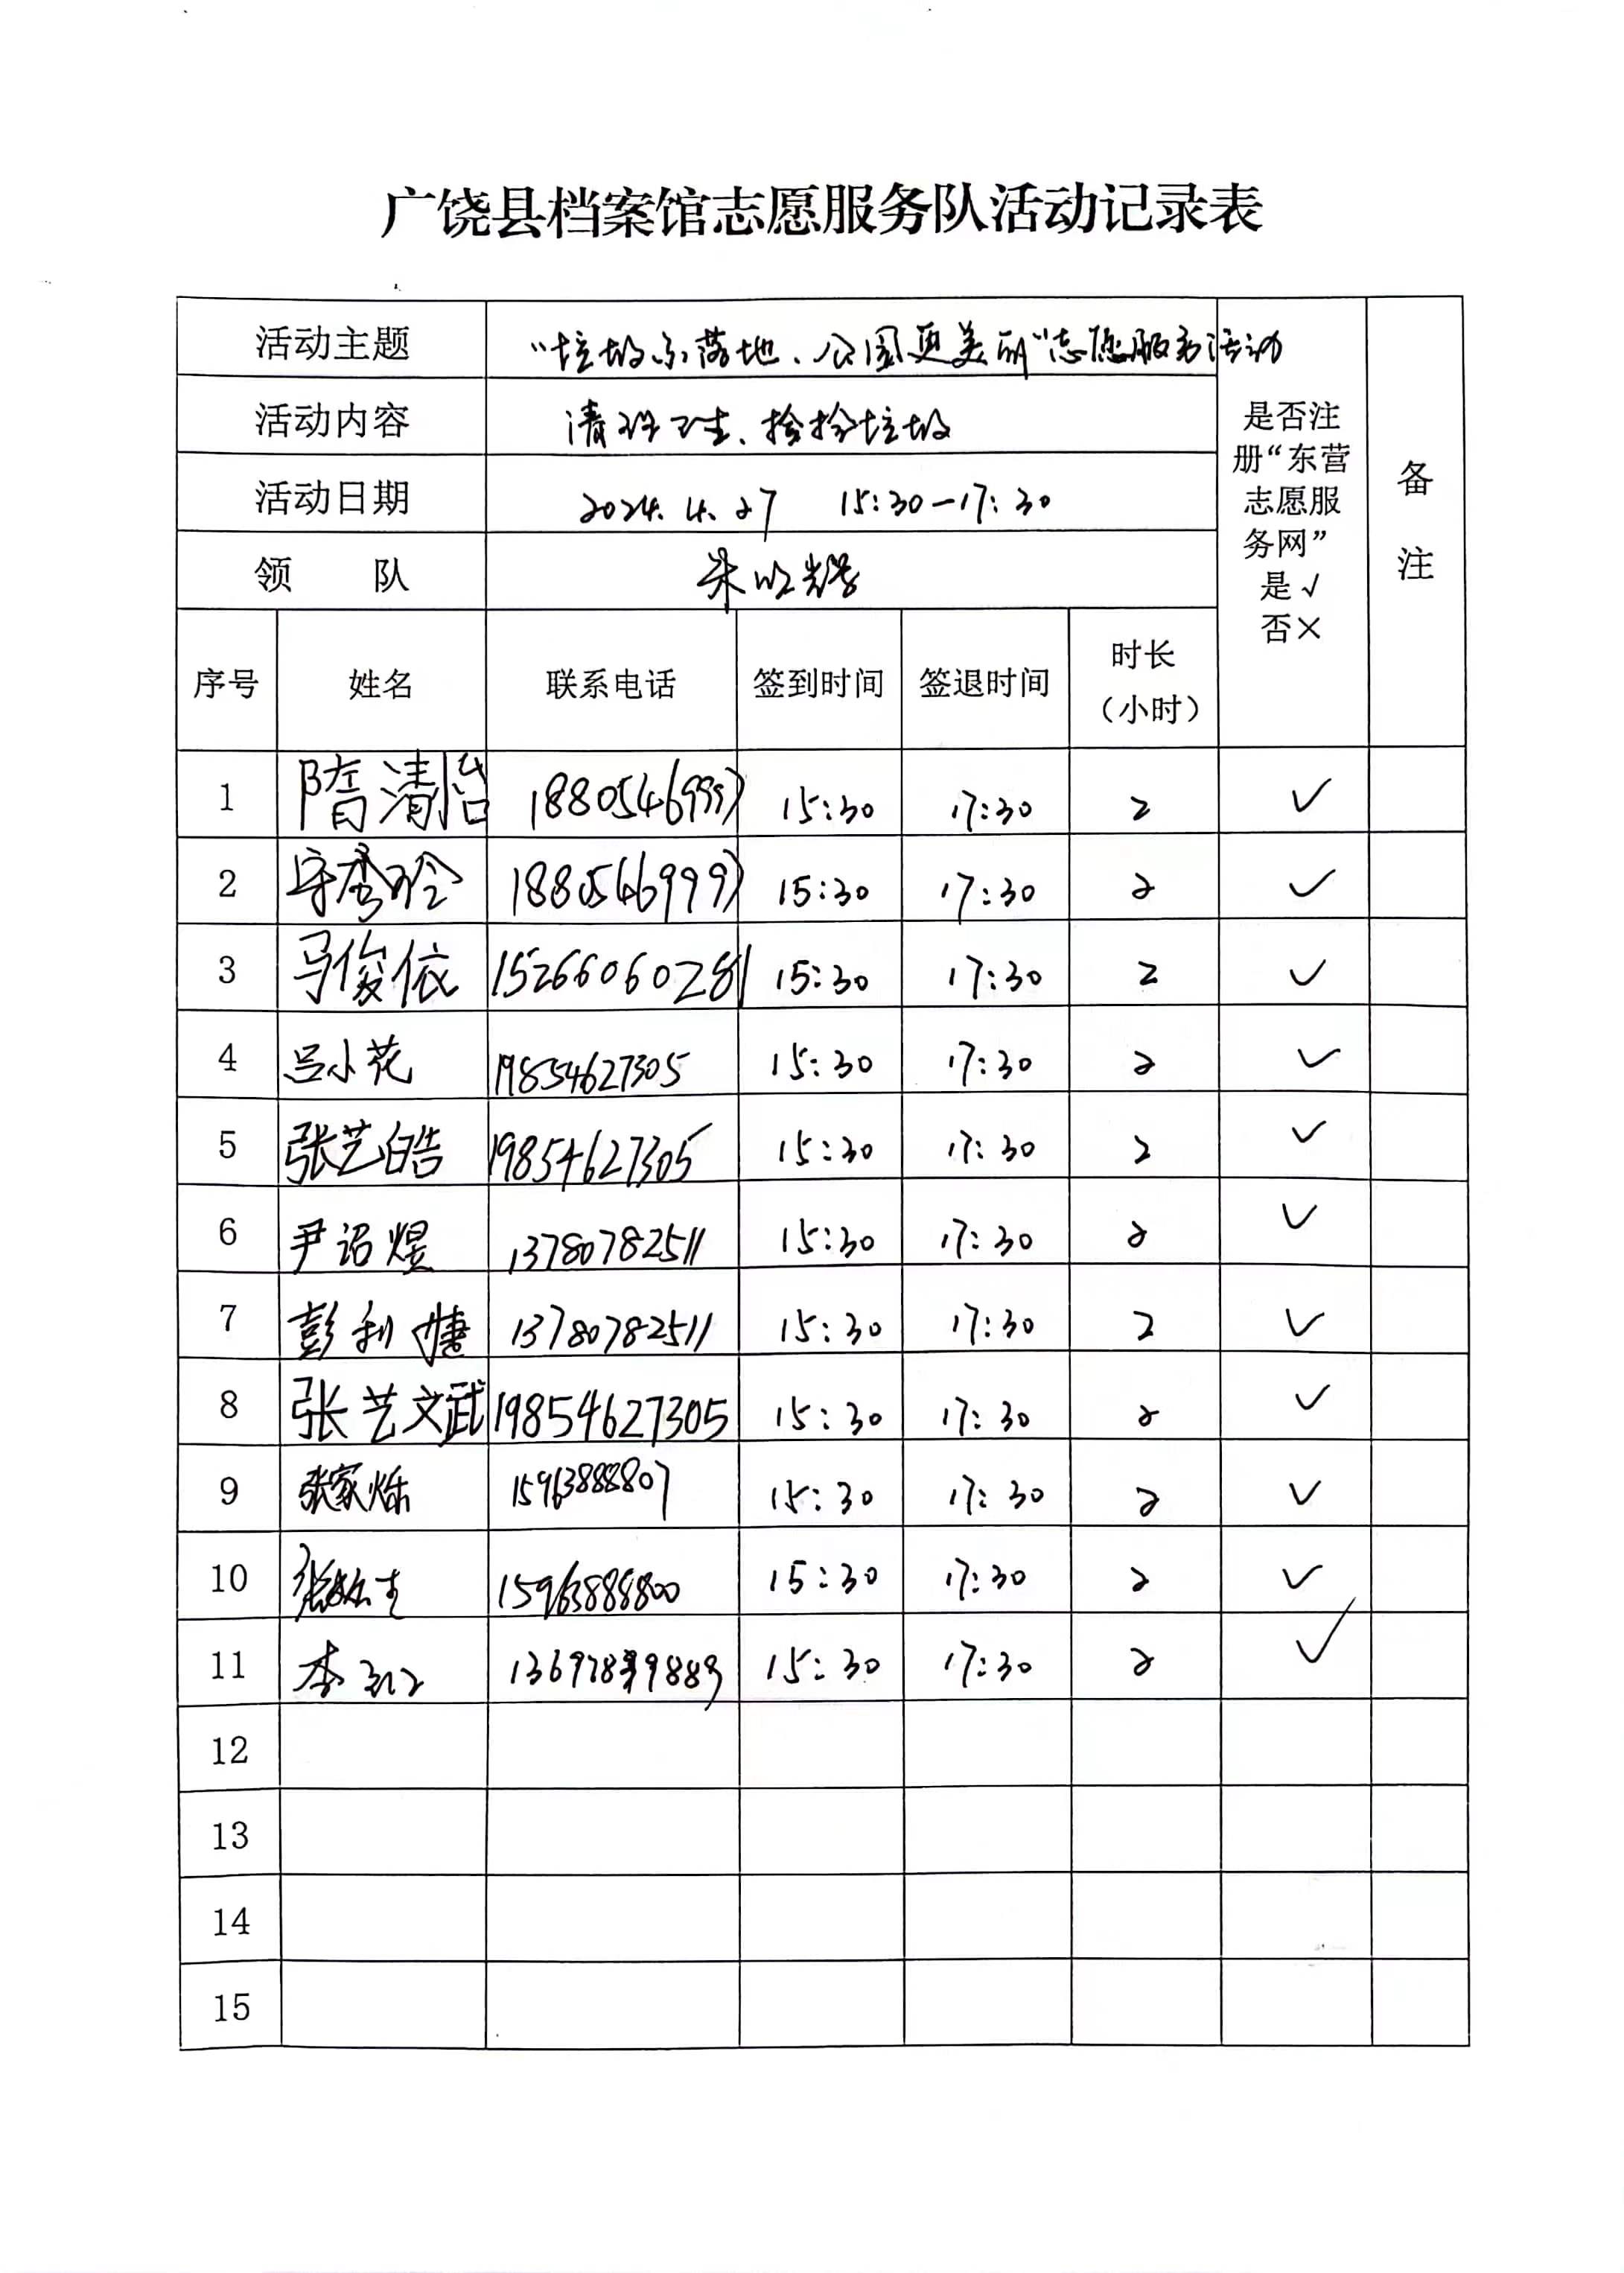 广饶县档案馆志愿服务队活动记录表
活动主题 “垃圾不落地、公园更美丽”志愿服务活动
活动内容 清理卫生、捡拾垃圾
活动日期 2024.4.27 15:30—17:30
领 队 朱
是否注
册“东营
志愿服
务网”
是√
否×
备
注
序号 姓名 联系电话 签到时间 签退时间 时长
（小时）
1 隋清怡 18805469997 15:30 17:30 2 ✓
2 秀玲 18805469997 15:30 17:30 2 ✓
3 马俊依 15266060281 15:30 17:30 2 ✓
4 吕小花 19854627305 15:30 17:30 2 ✓
5 张艺皓 19854627305 15:30 17:30 2 ✓
6 尹诏煜 13780782511 15:30 17:30 2 ✓
7 彭利 13780782511 15:30 17:30 2 ✓
8 张艺文武 19854627305 15:30 17:30 2 ✓
9 张家烁 15963888807 15:30 17:30 2 ✓
10 张 15963888800 15:30 17:30 2 ✓
11 李 15:30 17:30 2 ✓
12
13
14
15